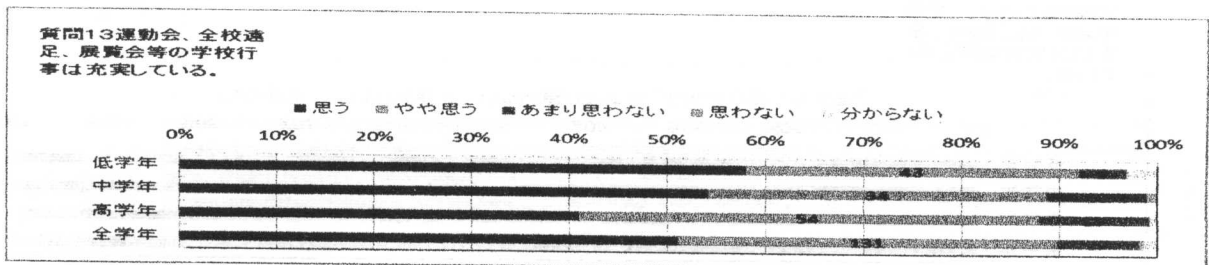 質問13運動会、全校遠
足、展覧会等の学校行
事は充実している。
■思う ■やや思う ■あまり思わない ■思わない 分からない
0% 10% 20% 30% 40% 50% 60% 70% 80% 90% 100%
低学年 43
中学年 34
高学年 54
全学年 131